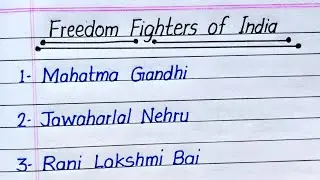 Freedom Fighters of India
1- Mahatma Gandhi
2- Jawaharlal Nehru
3- Rani Lakshmi Bai